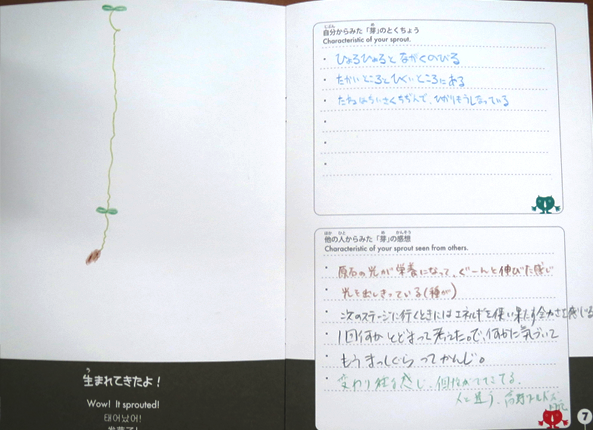 生まれてきたよ！
Wow! It sprouted!
태어났어!
自分からみた「芽」のとくちょう
Characteristic of your sprout.
ひょろひょろと ながくのびる
たかいところと ひくいところにある
たねはちいさくちぢんで、ひからそうになっている
他の人からみた「芽」の感想
Characteristic of your sprout seen from others.
原石の光が栄養になって、ぐーんと伸びた感じ
光を出しきっている(種が)
次のステージに行くときにはエネルギーを使い果たす全力さを感じる
1回何かとどまって考えたので、何かに気づいて
もうまっしぐらってかんじ。
変わり種を感じ、個性がでてきてる。
人と違う、
7